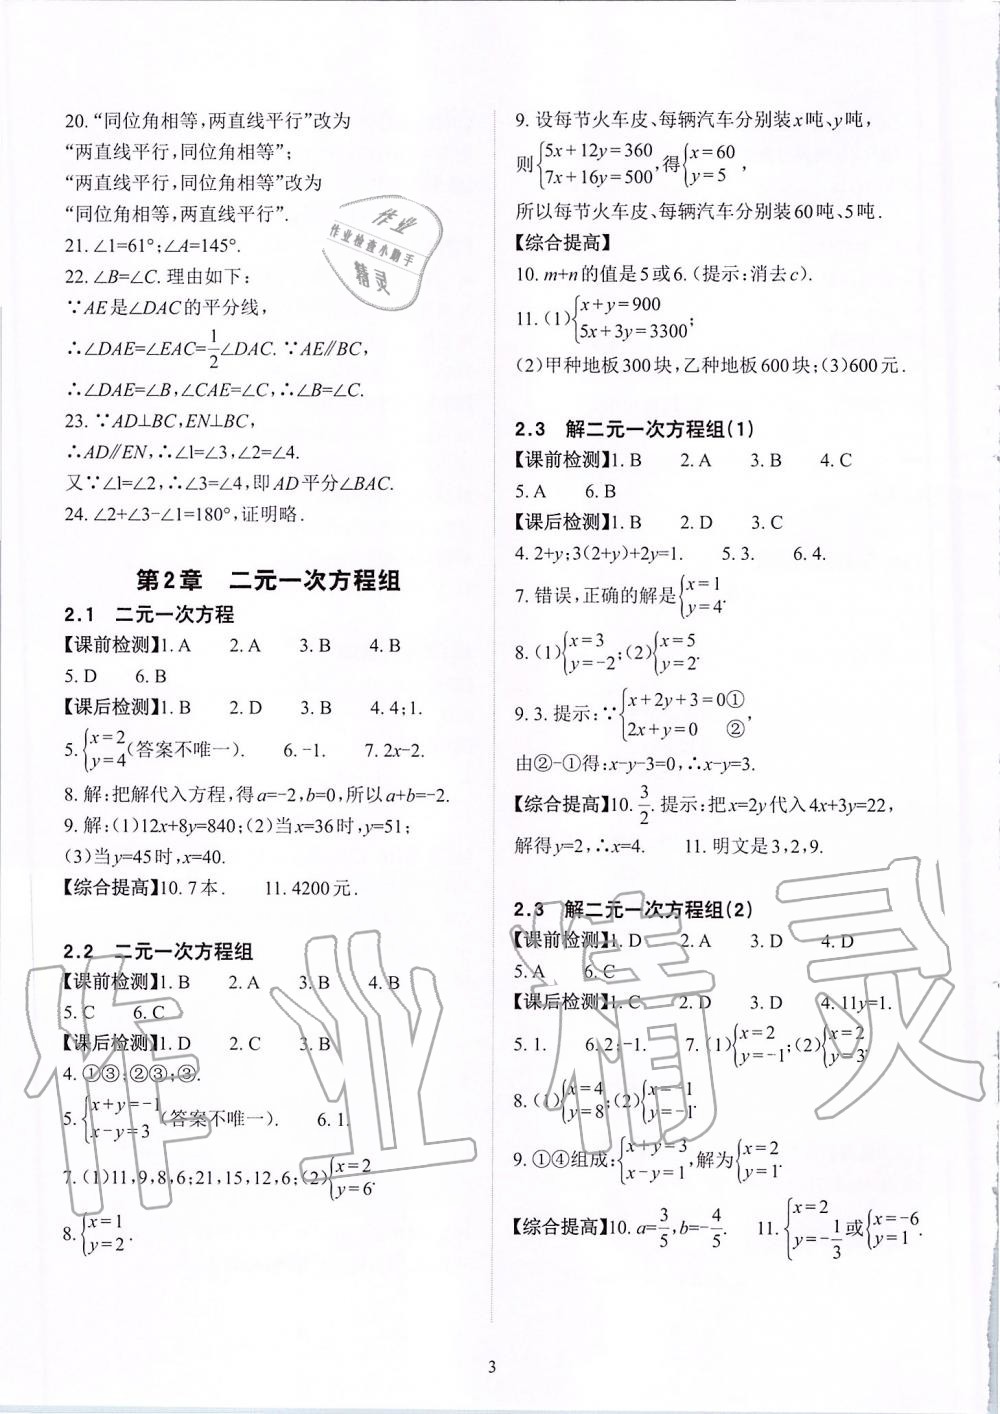 20. “同位角相等,两直线平行”改为
“两直线平行,同位角相等”;
“两直线平行,同位角相等”改为
“同位角相等,两直线平行”.
21. ∠1=61°;∠A=145°.
22. ∠B=∠C. 理由如下:
∵AE是∠DAC的平分线,
∴∠DAE=∠EAC=1/2∠DAC. ∵AE∥BC,
∴∠DAE=∠B,∠CAE=∠C,∴∠B=∠C.
23. ∵AD⊥BC,EN⊥BC,
∴AD∥EN,∴∠1=∠3,∠2=∠4.
又∵∠1=∠2,∴∠3=∠4,即AD平分∠BAC.
24. ∠2+∠3-∠1=180°,证明略.
第2章 二元一次方程组
2.1 二元一次方程
【课前检测】1. A 2. A 3. B 4. B
5. D 6. B
【课后检测】1. B 2. D 3. B 4. 4;1.
5. {x=2 y=4(答案不唯一). 6. -1. 7. 2x-2.
8. 解:把解代入方程,得a=-2,b=0,所以a+b=-2.
9. 解:(1)12x+8y=840;(2)当x=36时,y=51;
(3)当y=45时,x=40.
【综合提高】10. 7本. 11. 4200元.
2.2 二元一次方程组
【课前检测】1. B 2. A 3. B 4. B
5. C 6. C
【课后检测】1. D 2. C 3. B
4. ①③;②③;③.
5. {x+y=-1 x-y=3(答案不唯一). 6. 1.
7. (1)11,9,8,6;21,15,12,6;(2){x=2 y=6.
8. {x=1 y=2.
9. 设每节火车皮、每辆汽车分别装x吨、y吨,
则{5x+12y=360 7x+16y=500,得{x=60 y=5,
所以每节火车皮、每辆汽车分别装60吨、5吨.
【综合提高】
10. m+n的值是5或6. (提示:消去c).
11. (1){x+y=900 5x+3y=3300;
(2)甲种地板300块,乙种地板600块;(3)600元.
2.3 解二元一次方程组(1)
【课前检测】1. B 2. A 3. B 4. C
5. A 6. B
【课后检测】1. B 2. D 3. C
4. 2+y;3(2+y)+2y=1. 5. 3. 6. 4.
7. 错误,正确的解是{x=1 y=4.
8. (1){x=3 y=-2;(2){x=5 y=2.
9. 3. 提示:∵{x+2y+3=0① 2x+y=0 ②,
由②-①得:x-y-3=0,∴x-y=3.
【综合提高】10. 3/2. 提示:把x=2y代入4x+3y=22,
解得y=2,∴x=4. 11. 明文是3,2,9.
2.3 解二元一次方程组(2)
【课前检测】1. D 2. A 3. D 4. D
5. A 6. C
【课后检测】1. C 2. D 3. D 4. 11y=1.
5. 1. 6. 2;-1. 7. (1){x=2 y=-1;(2){x=2 y=3.
8. (1){x=4 y=8;(2){x=-1 y=-1.
9. ①④组成:{x+y=3 x-y=1,解为{x=2 y=1.
【综合提高】10. a=3/5,b=-4/5. 11. {x=2 y=-1/3或{x=-6 y=1.
3
作业
作业检查小助手
精灵
作业精灵